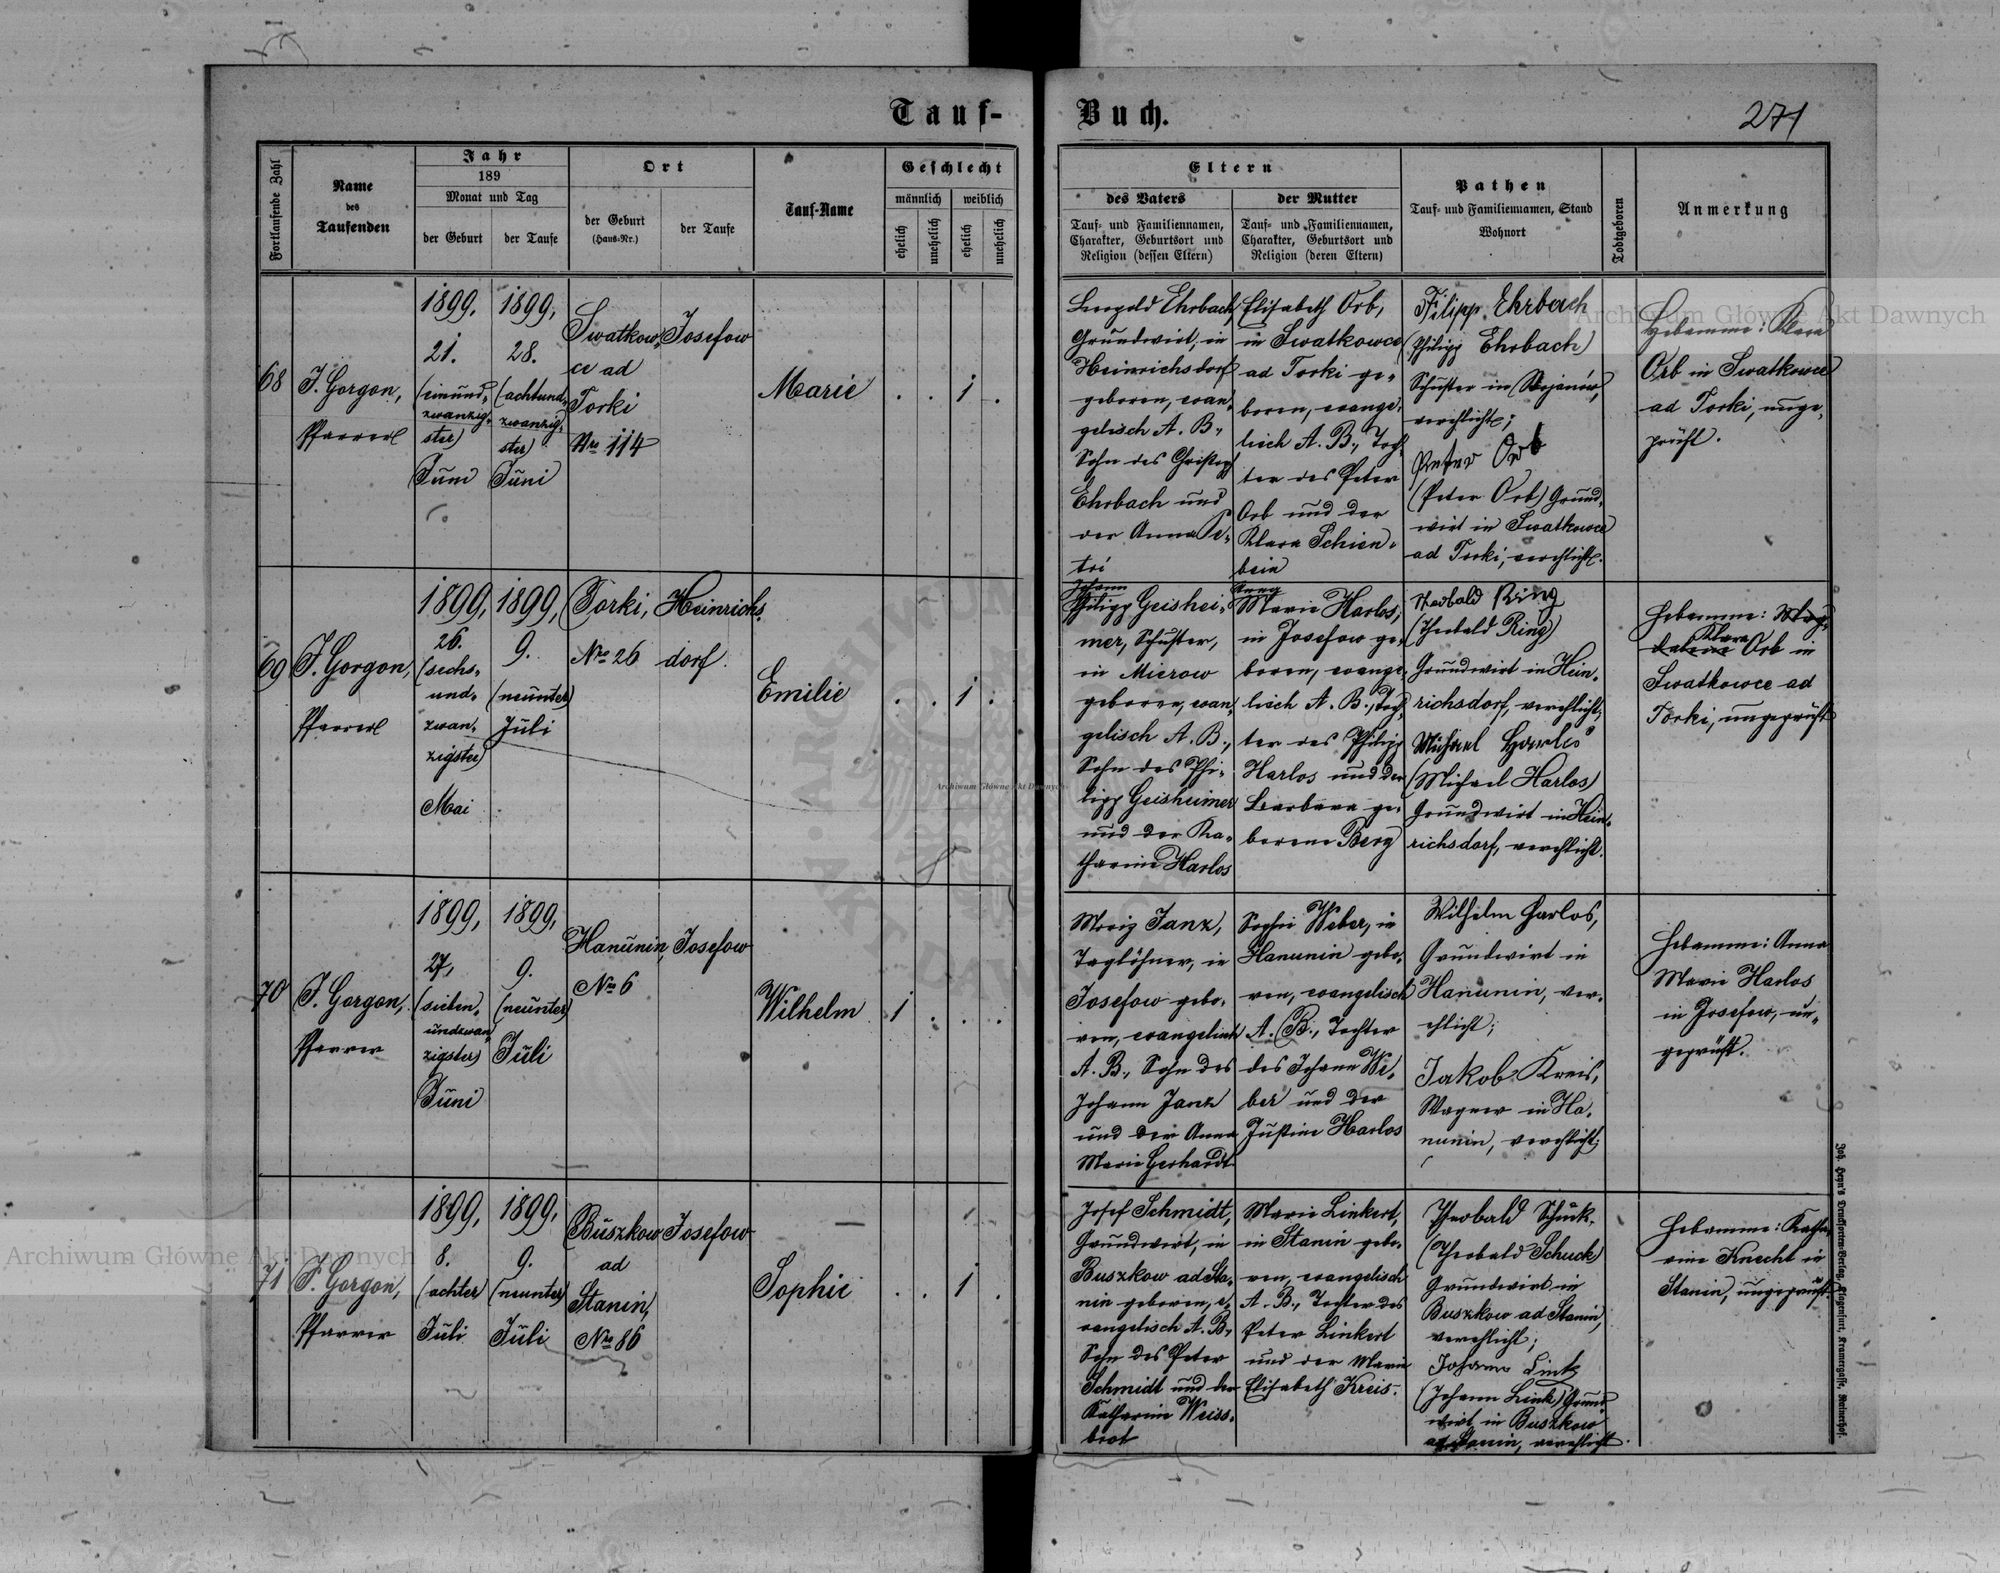 Tauf-Buch.
271
Fortlaufende Zahl
Name
des
Taufenden
Jahr
189
Monat und Tag
der Geburt
der Taufe
Ort
der Geburt
(Haus-Nr.)
der Taufe
Tauf-Name
Geschlecht
männlich
weiblich
ehelich
unehelich
ehelich
unehelich
Eltern
des Vaters
Tauf- und Familiennamen,
Charakter, Geburtsort und
Religion (dessen Eltern)
der Mutter
Tauf- und Familiennamen,
Charakter, Geburtsort und
Religion (deren Eltern)
Pathen
Tauf- und Familiennamen, Stand
Wohnort
Todtgeboren
Anmerkung
68
J. Gorgon,
Pfarrer
1899,
21.
(einund-
zwanzig-
ster)
Juni
1899,
28.
(achtund-
zwanzig-
ster)
Juni
Swatkow-
ce ad
Torki
Nro 114
Josefow
Marie
. . 1 .
Leopold Ehrbach,
Grundwirt, in
Heinrichsdorf
geboren, evan-
gelisch A. B.,
Sohn des Christof
Ehrbach und
der Anna Pe-
tri
Elisabeth Orb,
in Swatkowce
ad Torki ge-
boren, evange-
lisch A. B., Toch-
ter des Peter
Orb und der
Klara Schien-
bein
Filipp Ehrbach
(Philipp Ehrbach)
Schuster in Stojanów,
verehlicht;
Peter Orb
(Peter Orb) Grund-
wirt in Swatkowce
ad Torki, verehlicht.
Hebamme: Klara
Orb in Swatkowce
ad Torki, unge-
prüft.
69
J. Gorgon,
Pfarrer
1899,
26.
(sechs-
und-
zwan-
zigster)
Mai
1899,
9.
(neunter)
Juli
Torki,
No 26
Heinrichs-
dorf.
Emilie
. . 1 .
Johann
Philipp Geishei-
mer, Schuster,
in Mierow
geboren, evan-
gelisch A. B.,
Sohn des Phi-
lipp Geisheimer
und der Ka-
tharine Harlos
Anna
Marie Harlos,
in Josefow ge-
boren, evange-
lisch A. B., Toch-
ter des Philipp
Harlos und der
Barbara ge-
borene Berg
Theobald Ring
(Theobald Ring)
Grundwirt in Hein-
richsdorf, verehlicht,
Michael Harlos
(Michael Harlos)
Grundwirt in Hein-
richsdorf, verehlicht.
Hebamme: Mag-
Klara
dalena Orb in
Swatkowce ad
Torki, ungeprüft
70
J. Gorgon,
Pfarrer
1899,
27,
(sieben-
undzwan-
zigster)
Juni
1899,
9.
(neunter)
Juli
Hanunin,
No 6
Josefow
Wilhelm
1 . . .
Moriz Janz,
Taglöhner, in
Josefow gebo-
ren, evangelisch
A. B., Sohn des
Johann Janz
und der Anna
Marie Gerhardt
Sophie Weber, in
Hanunin gebo-
ren, evangelisch
A. B., Tochter
des Johann We-
ber und der
Justine Harlos
Wilhelm Harlos,
Grundwirt in
Hanunin, ver-
ehlicht;
Jakob Kreis,
Wagner in Ha-
nunin, verehlicht;
Hebamme: Anna
Marie Harlos
in Josefow, un-
geprüft.
71
J. Gorgon,
Pfarrer
1899,
8.
(achter)
Juli
1899,
9.
(neunter)
Juli
Buszkow
ad
Stanin,
No 86
Josefow
Sophie
. . 1 .
Josef Schmidt,
Grundwirt, in
Buszkow ad Sta-
nin geboren, e-
vangelisch A. B.,
Sohn des Peter
Schmidt und der
Katharine Weiss-
brot
Marie Linkert,
in Stanin gebo-
ren, evangelisch
A. B., Tochter des
Peter Linkert
und der Marie
Elisabeth Kreis.
Theobald Schuck,
(Theobald Schuck)
Grundwirt in
Buszkow ad Stanin,
verehlicht;
Johann Link
(Johann Link) Grund-
wirt in Buszkow
ad Stanin, verehlicht.
Hebamme: Katha-
rine Knecht in
Stanin, ungeprüft.
Joh. Heyn's Drucksorten-Verlag, Klagenfurt, Kramergasse, Rainerhof.
Archiwum Główne Akt Dawnych
Archiwum Główne Akt Dawnych
Archiwum Główne Akt Dawnych